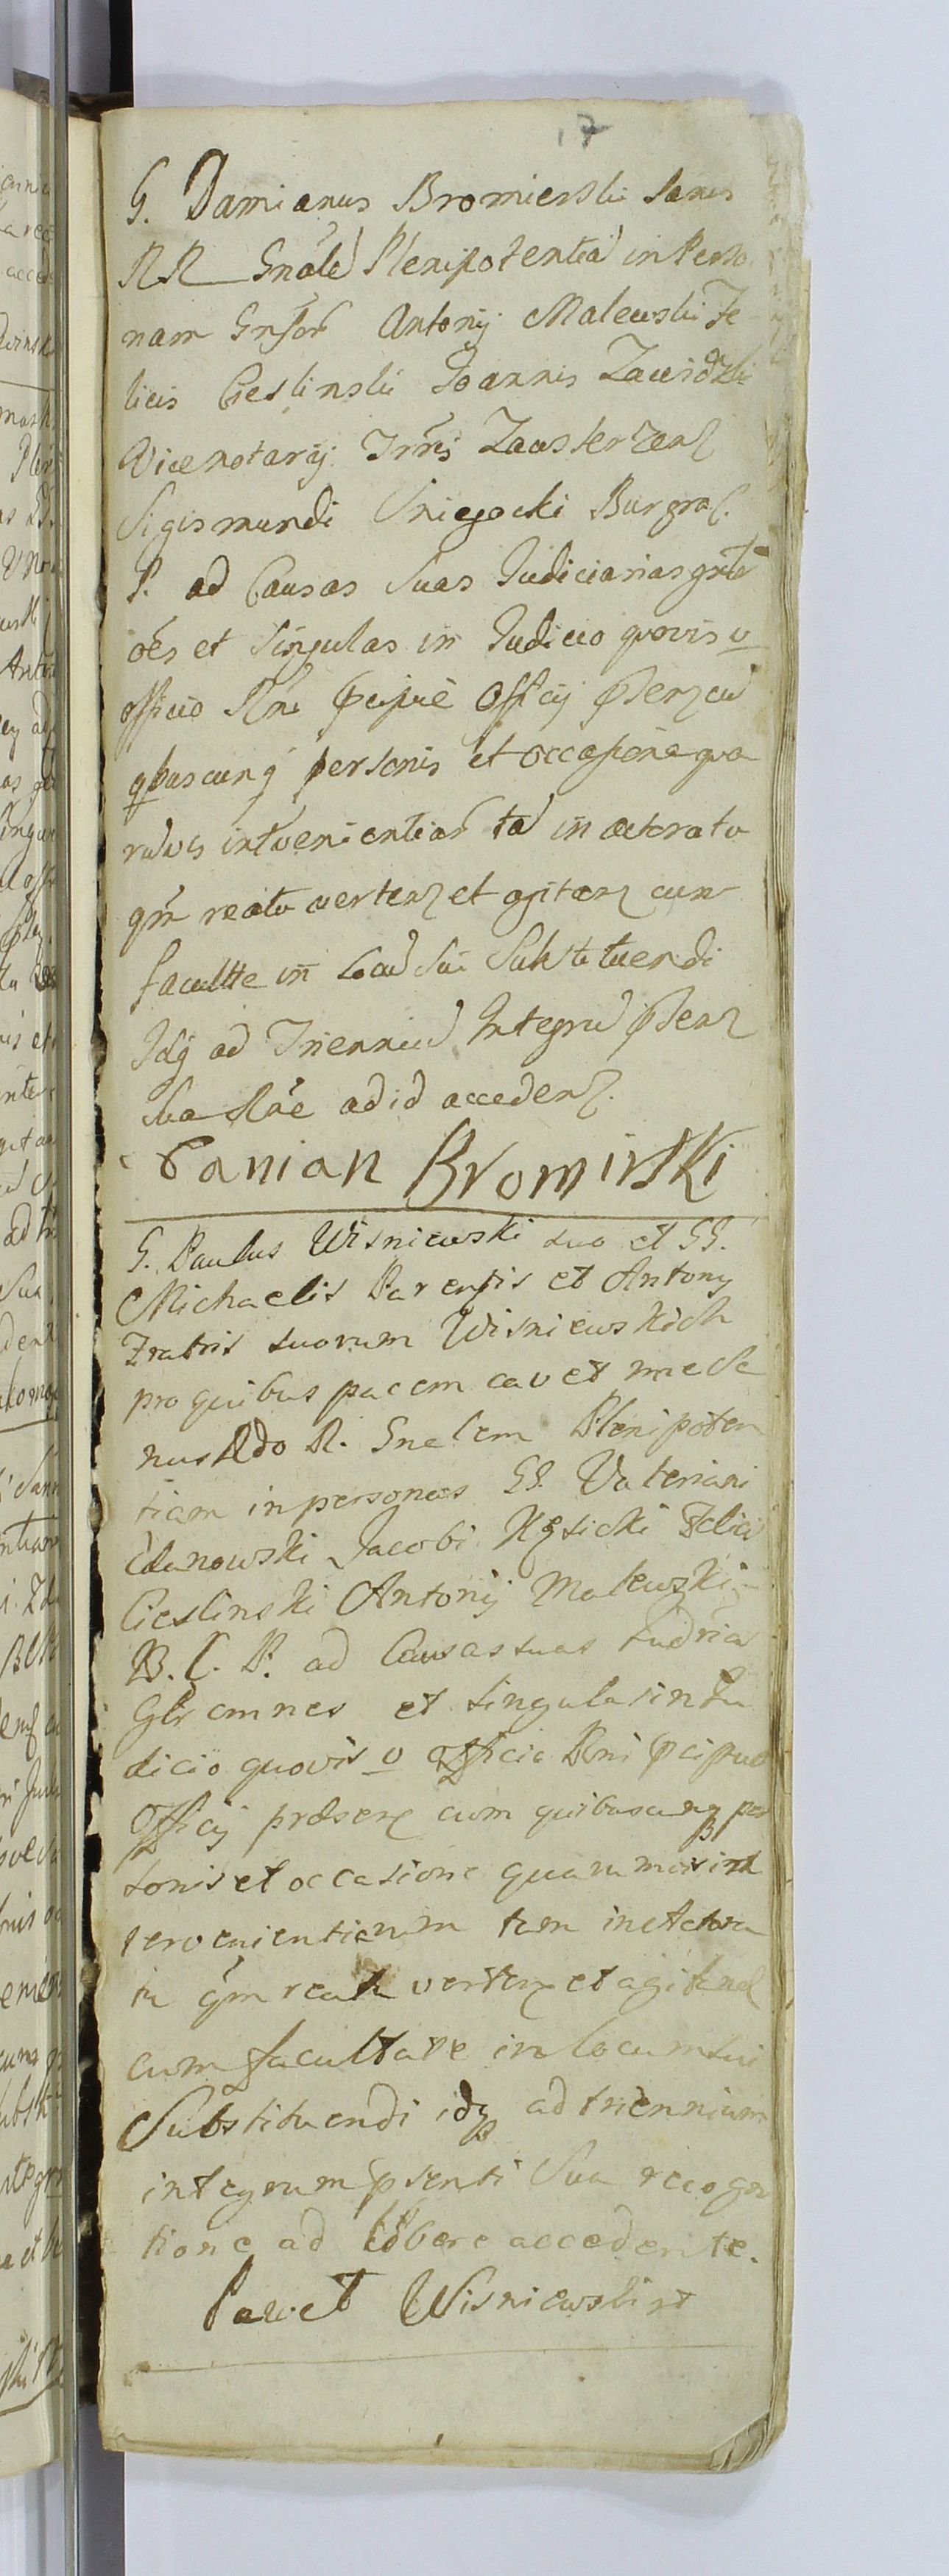 17
G. Damianus Bromierski Sanus
RR Gnãle Plenipotentiã in Perso
nam Gnsor Antonij Malewski Fe
licis Cieslinski Joannis Zawidzki
Vicenotarij Trrīs Zawskrzen
Sigismundi Sniegocki Burgraf.
P. ad Causas Suas Judiciarias grlē
oēs et Singulas in Judicio quovis v
officio Rni pcipuē Officij pser cū
qbuscunq personis et occasione qua
rūvis intvenientiar tā in acttratu
qm reatu verten et agitan cum
facultte in Locū Sui Substituendi
Idq ad Trienniū Integrū psen
Sua Rne ad id acceden.
Damian Bromirski
G. Paulus Wisniewski suo et GG.
Michaelis Parentis et Antonij
Fratris suorum Wisniewskich
pro quibus pacem cavet nne Sa
nus Rdo R. Gnelem Plenipoten
tiam in personas GG. Valeriani
Zdanowski Jacobi Kęsicki Felicis
Cieslinski Antonij Malewski
B. C. P. ad Causas suas Judrias
Glr omnes et singulas in Ju
dicio quovis v Officio Rni pcipue
Officij præsen cum quibuscunq per
sonis et occasione quarumvis int
tervenientium tam in Actora
tu qm reatu verten et agitand
cum facultate in locum sui
Substituendi idq ad triennium
integrum psenti Sua recogni
tione ad libere accedente.
Paweł Wisniewski